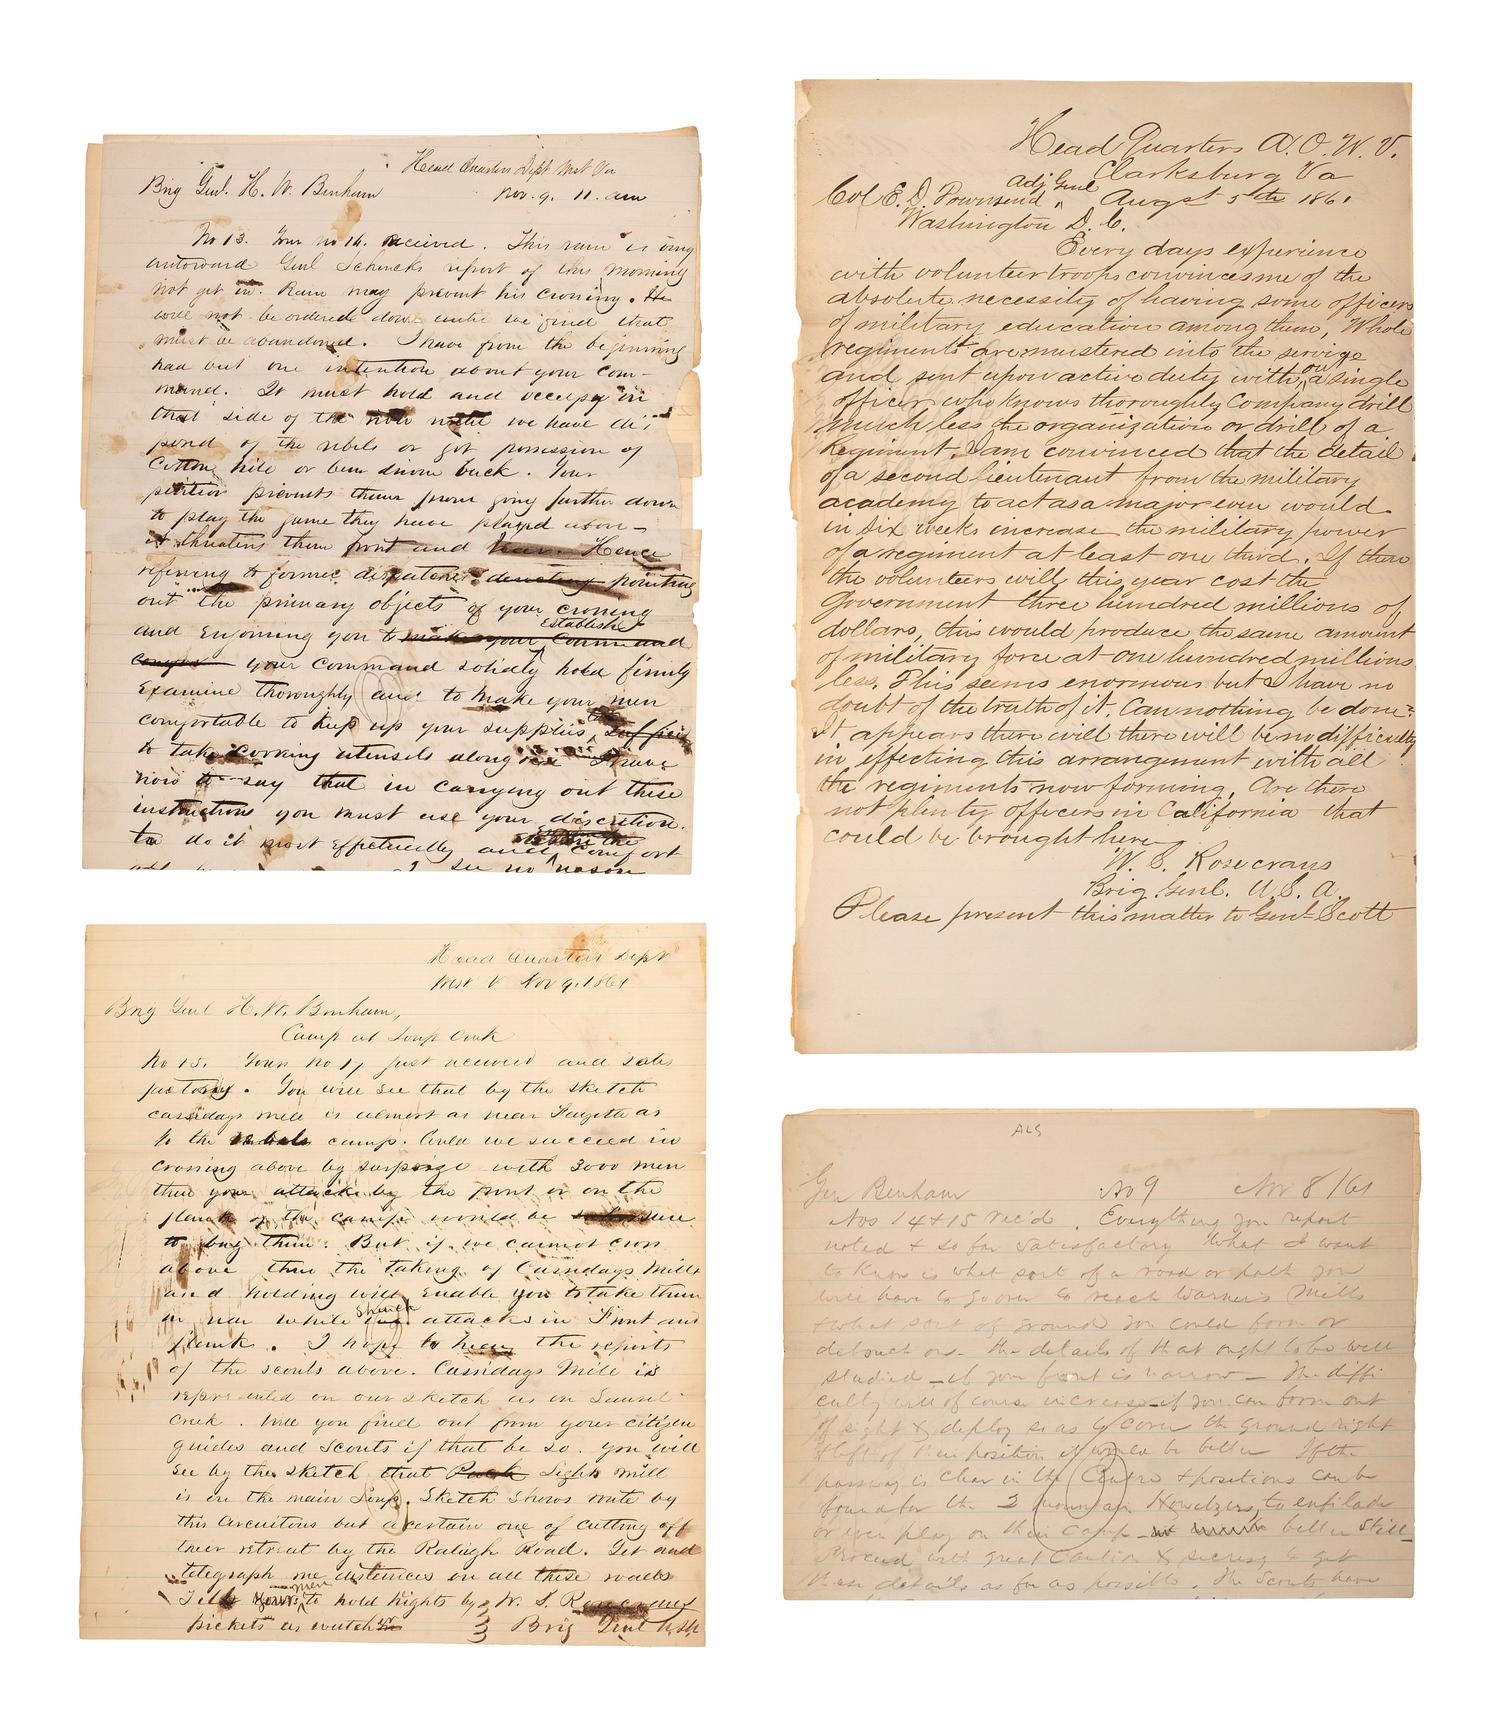 Head Quarters Dept West Va
Brig Genl. H. W. Benham Nov. 9. 11. am
No 13. Your no 14. received. This rain is very
untoward Genl Schencks report of this morning
not yet in. Rain may prevent his crossing. He
will not be ordered down until we find that
must be abandoned. I have from the beginning
had but one intention about your com-
mand. It must hold and occupy in
that side of the until we have dis
posed of the rebels or got possession of
Cotton hill or been driven back. Your
position prevents them from going further down
to play the game they have played above
it threatens them front and rear. Hence
refering to former dispatches denoting pointing
out the primary objects of your crossing
and enjoining you to make your Command Establish
your command solidly hold firmly
Examine thoroughly and to make your men
comfortable to keep up your supplies
to take cooking utensels along I have
now to say that in carrying out these
instructions you must use your discretion.
to do it most effectually and comfort
I see no reason
Head Quarters Dept
West V Nov 9. 1861
Brig Genl H. W. Benham,
Camp at Loup Creek
No 15. Yours No 17 just received and satis
factory. You will see that by the sketch
cassidays mill is almost as near Fayette as
to the rebels camp. Could we succeed in
crossing above by surprize with 3000 men
then your attacks by the front or on the
flank of the camp would be sure
to bag them. But if we cannot cross
above then the taking of Cassidays Mill
and holding will enable you to take them
in rear while Schenck attacks in Front and
flank. I hope to hear the reports
of the scouts above. Cassidays Mill is
represented on our sketch as on Laurel
Creek. Will you find out from your citizen
guides and scouts if that be so. You will
see by the sketch that Lights mill
is on the main Loup. Sketch shows route by
this circuitous but a certain one of cutting off
their retreat by the Raleigh Road. Get and
telegraph me distances on all these roads
Tell your men to hold heights by W. S. Rosecrans
pickets as watch Brig Genl U.S.A.
Head Quarters A. O. W. V.
Clarksburg Va
Col E. D. Townsend Adj Genl Augst 5th 1861
Washington D. C.
Every days experience
with volunteer troops convinces me of the
absolute necessity of having some officers
of military education among them, Whole
regiments are mustered into the service
and sent upon active duty without a single
officer who knows thoroughly Company drill
much less the organization or drill of a
Regiment. I am convinced that the detail
of a second lieutenant from the military
academy to act as a major even would
in six weeks increase the military power
of a regiment at least one third. If then
the volunteers will this year cost the
Government three hundred millions of
dollars, this would produce the same amount
of military force at one hundred millions
less. This seems enormous but I have no
doubt of the truth of it. Can nothing be done?
It appears there will there will be no difficulty
in effecting this arrangement with all
the regiments now forming. Are there
not plenty officers in California that
could be brought here
W. S. Rosecrans
Brig. Genl. U. S. A.
Please present this matter to Genl Scott
ALS
Gen Benham No 9 Nov 8 /61
Nos 14 & 15 rec'd. Everything you report
noted & so far satisfactory What I want
to know is what sort of a road or path you
will have to go over to reach Warner's Mills
& what sort of ground you could form or
debouch on - the details of that ought to be well
studied - if your front is narrow - The diffi
culty will of course increase - if you can form out
of sight & deploy so as to cover the ground right
& left of their position it would be better If the
passway is clear in the Centre & positions can be
found for the 2 mountain Howitzers to enfilade
or even play on their camp - better still
Proceed with great Caution & secresy to get
these details as far as possible. The Scouts have